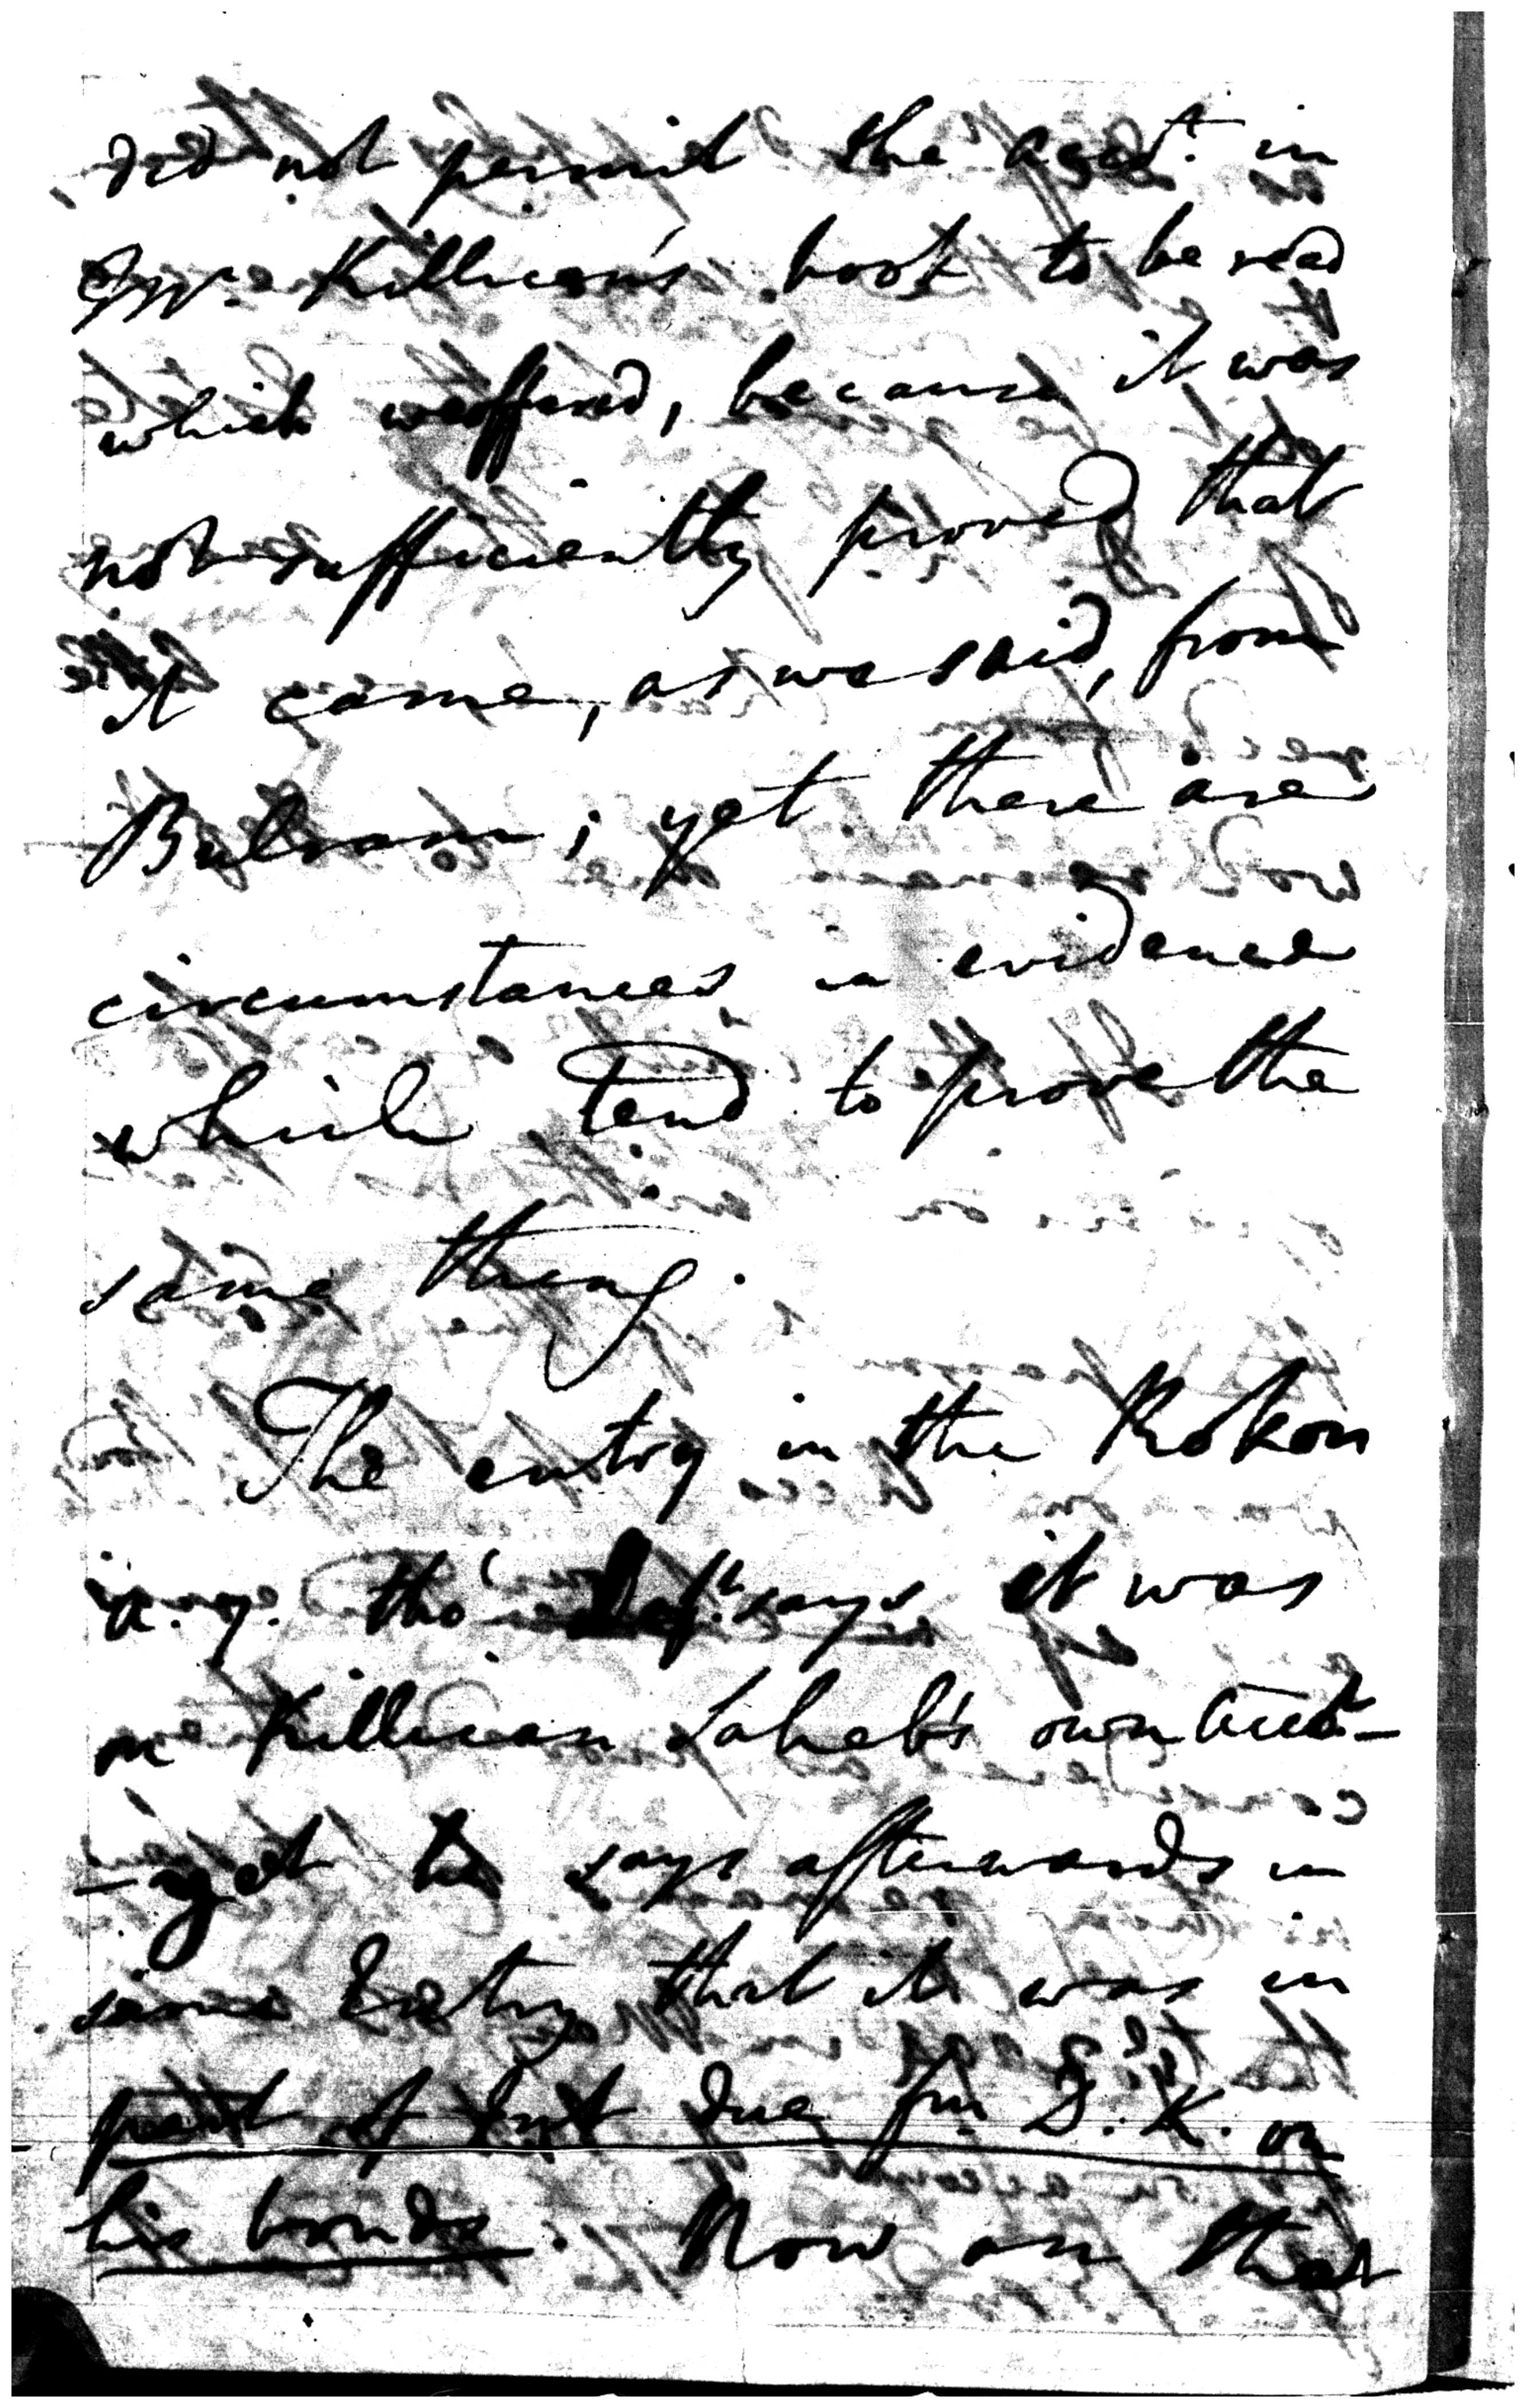 did not permit the acct. in
Mr. Killican's book to be read
which we offered, because it was
not sufficiently proved that
it came, as was said, from
Bulram; yet there are
circumstances in evidence
which tend to prove the
same thing.
The entry in the Rokon
tho' says it was
on Killican Saheb's own Acct. –
– yet says afterwards in
same Entry that it was in
part of Int due fm D. K. on
his bonds. Now on that